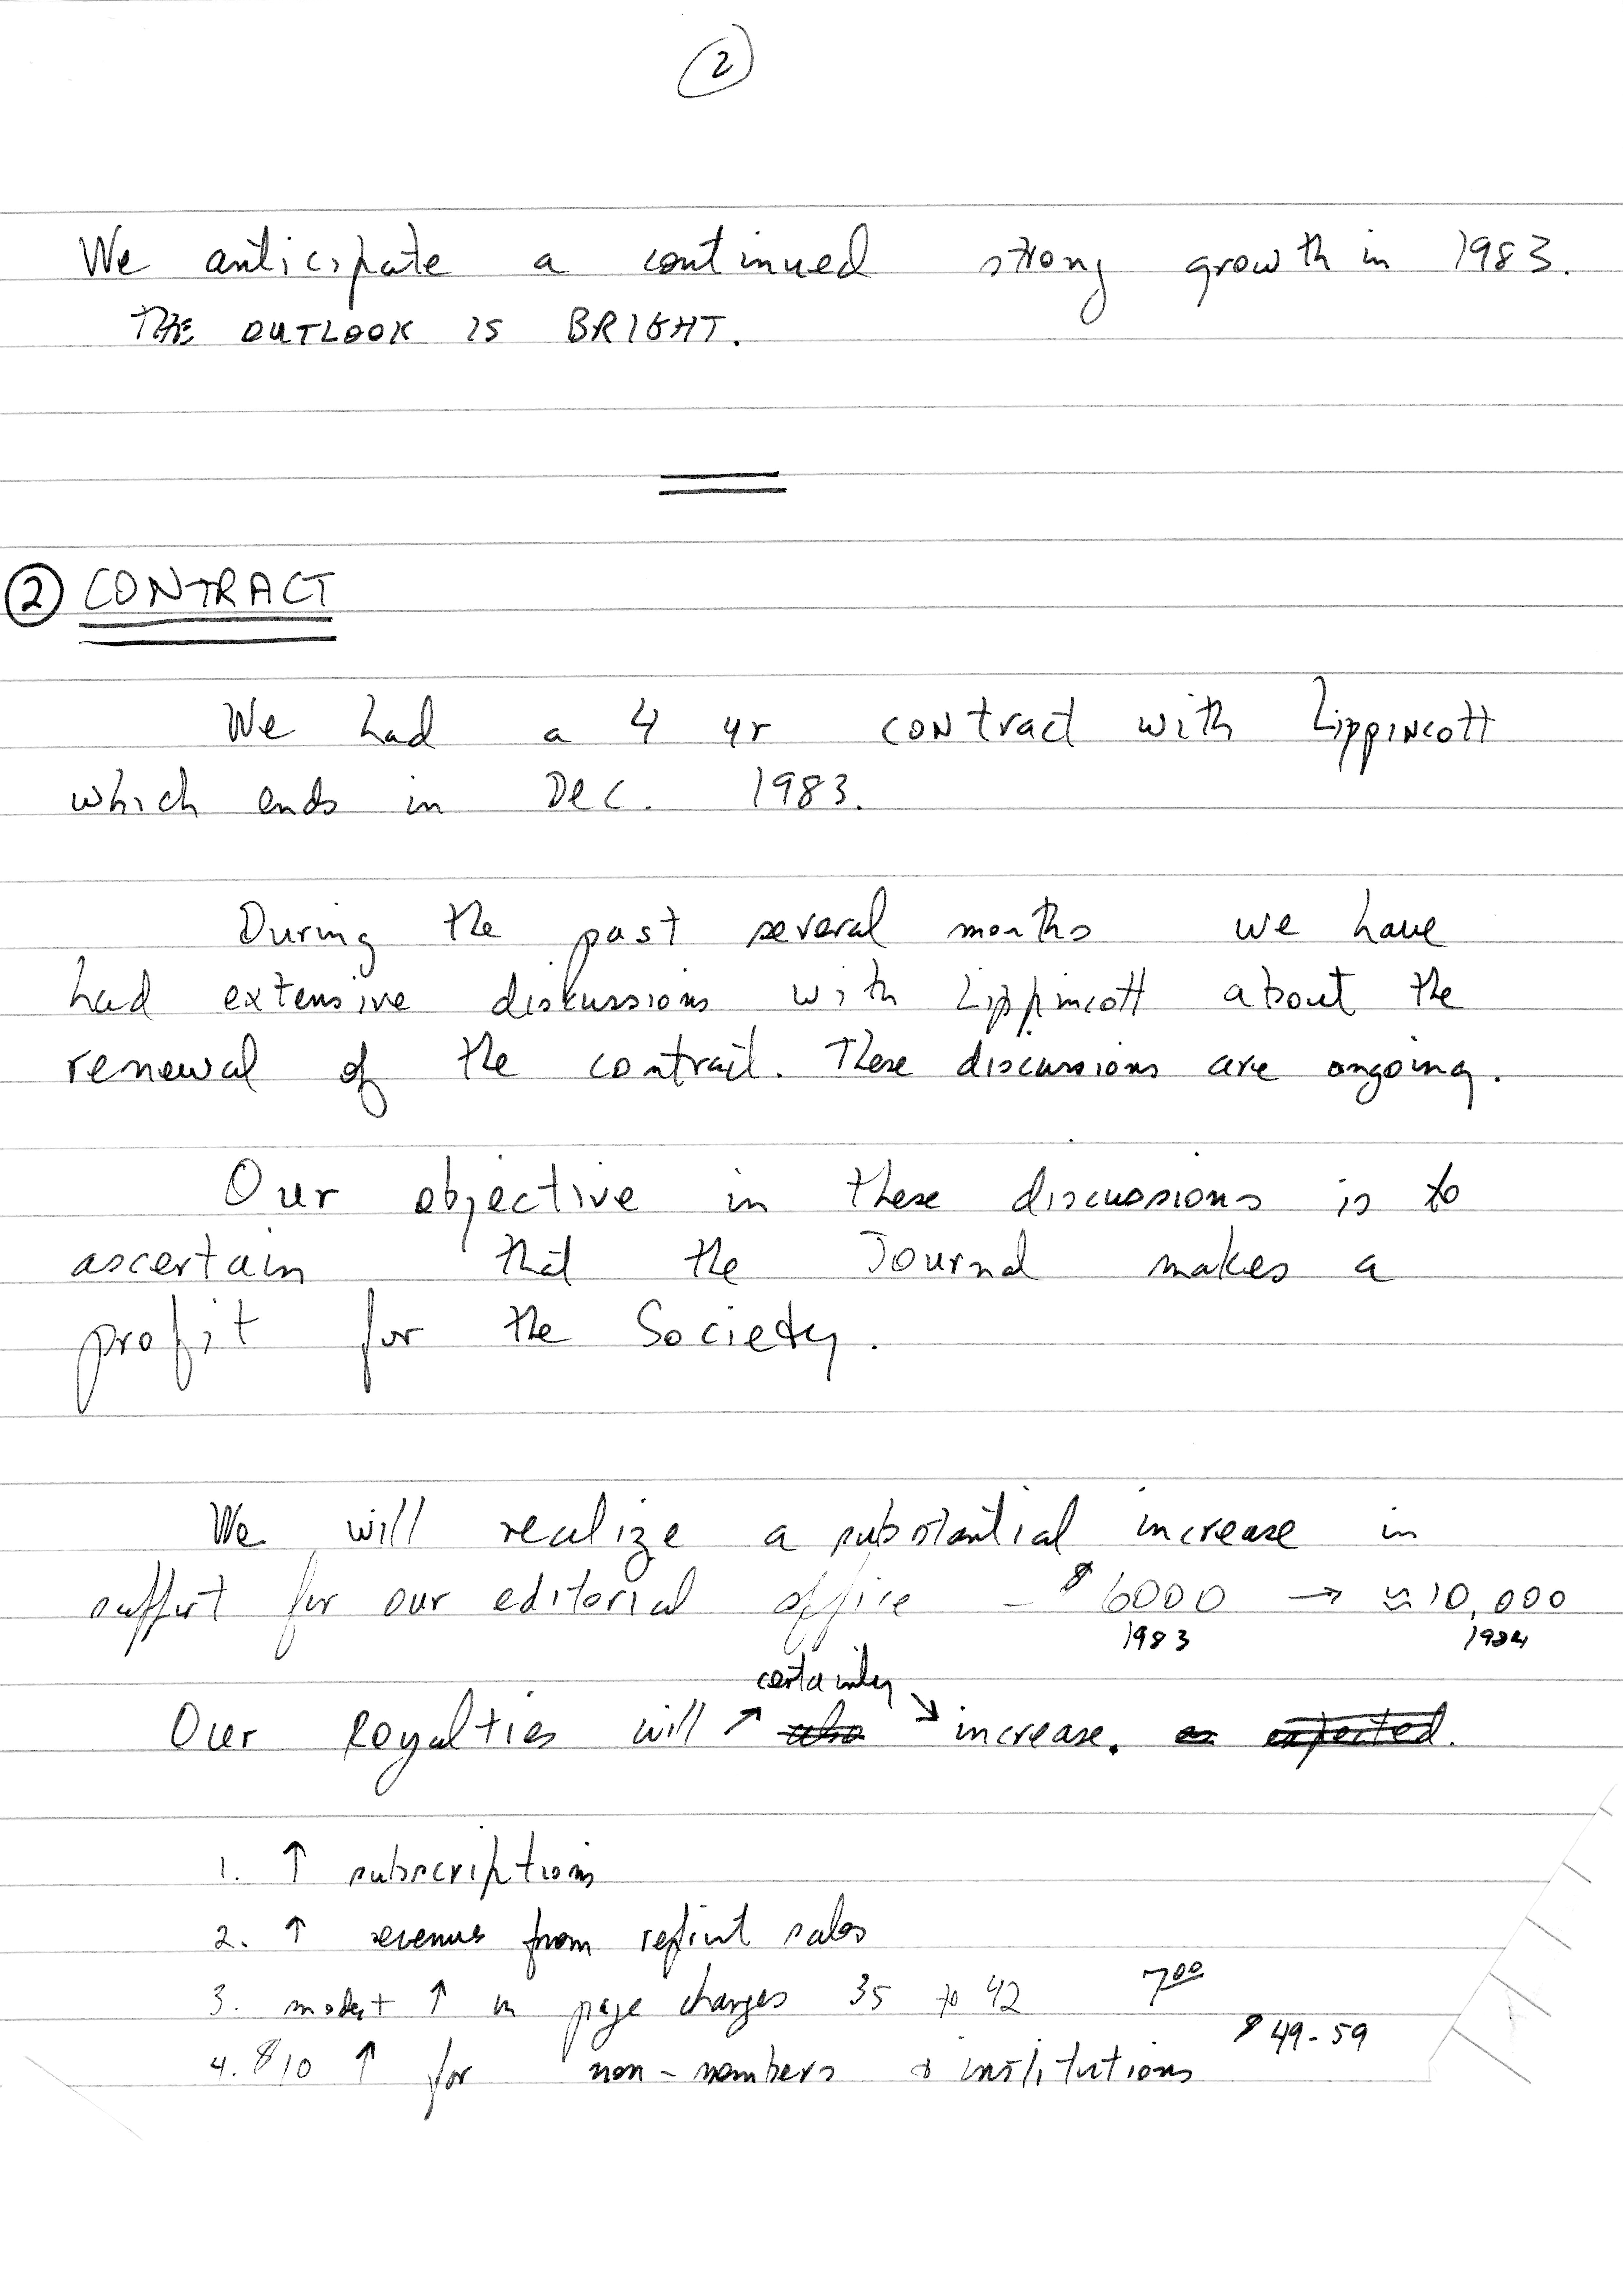 2
We anticipate a continued strong growth in 1983.
THE OUTLOOK IS BRIGHT.
2 CONTRACT
We had a 4 yr contract with Lippincott
which ends in Dec. 1983.
During the past several months we have
had extensive diskussions with Lippincott about the
renewal of the contract. These discussions are ongoing.
Our objective in these discussions is to
ascertain that the Journal makes a
profit for the Society.
We will realize a substantial increase in
support for our editorial office - $6000 → ≈10,000
1983 1984
certainly
Our Royalties will ↗ also ↘ increase. as expected.
1. ↑ subscriptions
2. ↑ revenues from reprint sales
3. modest ↑ in page charges 35 to 42 7.00
$49-59
4. $10 ↑ for non-members & institutions